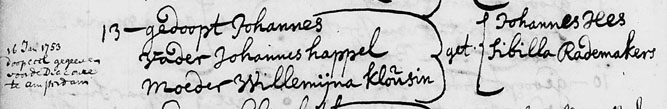 13 - gedoopt Johannes
Vader Johannes happel
Moeder Willemijna Kloùsin
get.
Johannes Hes
Sibilla Rademakers
16 Jan 1753
doopceel gegeven
voor de Diaconie
te amsterdam